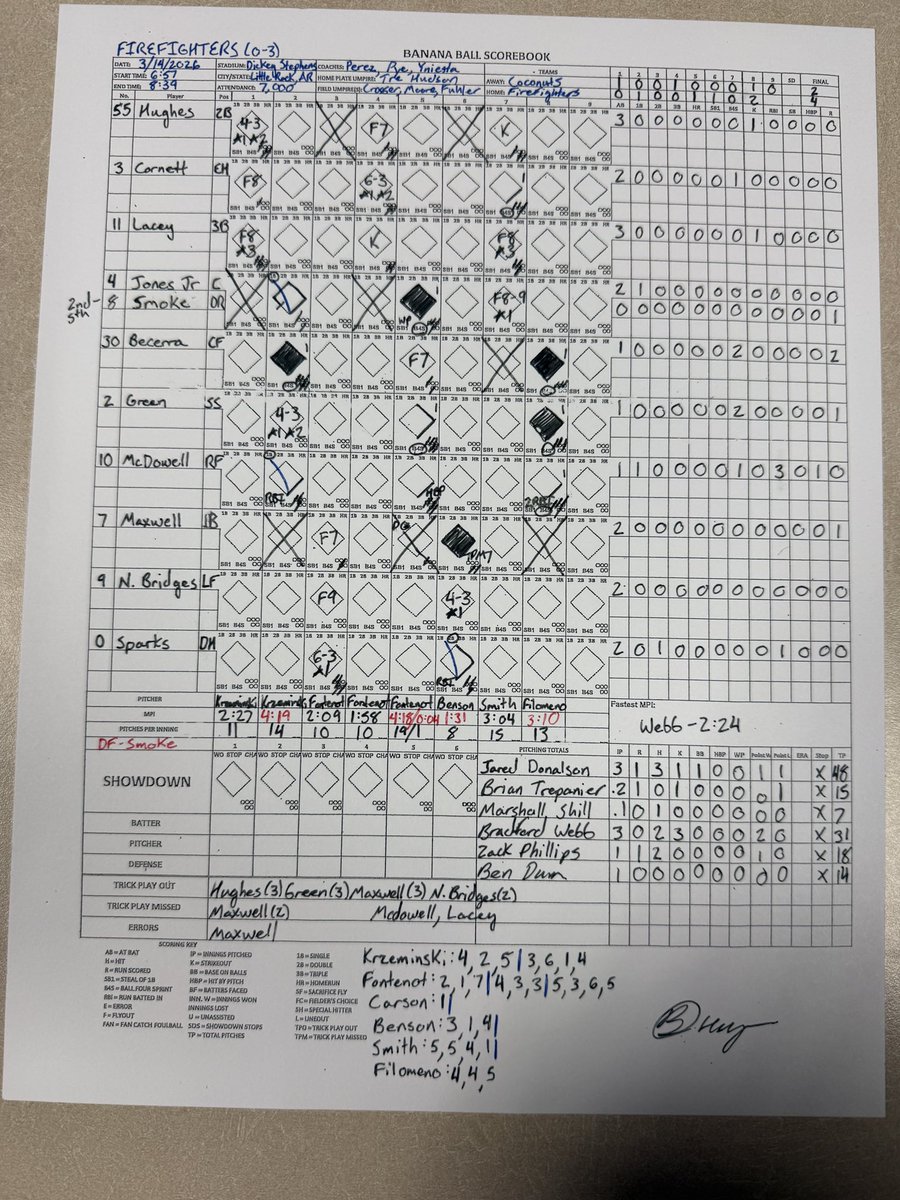 FIREFIGHTERS (0-3)
BANANA BALL SCOREBOOK
DATE: 3/14/2026 STADIUM: Dickey Stephens COACHES: Perez, Pye, Yniesta • TEAMS 1 2 3 4 5 6 7 8 9 SD FINAL
START TIME: 6:57 CITY/STATE: Little Rock, AR HOME PLATE UMPIRE: Tre Hudson AWAY: Coconuts 2
END TIME: 8:39 ATTENDANCE: 7,000 FIELD UMPIRE(S): Moore, Fuhler HOME: Firefighters 4
No. Player Pos 1 2 3 4 5 6 7 8 9 AB 1B 2B 3B HR SB1 B4S K RBI SB HBP R
55 Hughes 2B 4-3 F7 K 3 0 0 0 0 0 0 1 0 0 0 0
3 Cornett EH F8 6-3 2 0 0 0 0 0 1 0 0 0 0 0
11 Lacey 3B F8 K F8 3 0 0 0 0 0 0 1 0 0 0 0
4 Jones Jr C F8-9 2 1 0 0 0 0 0 0 0 0 0 0
2nd- 5th 8 Smoke DR WP 0 0 0 0 0 0 0 0 0 0 0 1
30 Becerra CF F7 1 0 0 0 0 0 2 0 0 0 0 2
2 Green SS 4-3 1 0 0 0 0 0 2 0 0 0 0 1
10 McDowell RF RBI HBP 2RBI 1 1 0 0 0 0 1 0 3 0 1 0
7 Maxwell 1B F7 2 0 0 0 0 0 0 0 0 0 0 1
9 N. Bridges LF F9 4-3 2 0 0 0 0 0 0 0 0 0 0 0
0 Sparks DH 6-3 RBI 2 0 1 0 0 0 0 0 1 0 0 0
PITCHER Krzeminski Krzeminski Fontenot Fontenot Fontenot Benson Smith Filomeno
MPI 2:27 4:19 2:09 1:58 4:18/0:04 1:31 3:04 3:10
PITCHES PER INNING 11 14 10 10 19/1 8 15 13
Fastest MPI:
Webb - 2:24
DF-Smoke 1 2 3 4 5 6 PITCHING TOTALS IP R H K BB HBP WP Point W Point L ERA Stop TP
SHOWDOWN
Jared Donalson 3 1 3 1 1 0 0 1 1 X 48
Brian Trepanier .2 1 0 1 0 0 0 0 1 X 15
Marshall Shill .1 0 1 0 0 0 0 0 0 X 7
BATTER Bradford Webb 3 0 2 3 0 0 0 2 0 X 31
PITCHER Zack Phillips 1 1 2 0 0 0 0 1 0 X 18
DEFENSE Ben Dum 1 0 0 0 0 0 0 0 0 X 14
TRICK PLAY OUT Hughes(3) Green(3) Maxwell(3) N. Bridges(2)
TRICK PLAY MISSED Maxwell(2) McDowell, Lacey
ERRORS Maxwell
SCORING KEY
AB = AT BAT IP = INNINGS PITCHED 1B = SINGLE
H = HIT K = STRIKEOUT 2B = DOUBLE
R = RUN SCORED BB = BASE ON BALLS 3B = TRIPLE
SB1 = STEAL OF 1B HBP = HIT BY PITCH HR = HOMERUN
B4S = BALL FOUR SPRINT BF = BATTERS FACED SF = SACRIFICE FLY
RBI = RUN BATTED IN INN. W = INNINGS WON FC = FIELDER'S CHOICE
E = ERROR INNINGS LOST SH = SPECIAL HITTER
F = FLYOUT U = UNASSISTED L = LINEOUT
FAN = FAN CATCH FOULBALL SDS = SHOWDOWN STOPS TPO = TRICK PLAY OUT
TP = TOTAL PITCHES TPM = TRICK PLAY MISSED
Krzeminski: 4, 2, 5 | 3, 6, 1, 4
Fontenot: 2, 1, 7 | 4, 3, 3 | 5, 3, 6, 5
Carson: 1 |
Benson: 3, 1, 4 |
Smith: 5, 5, 4, 1 |
Filomeno: 4, 4, 5